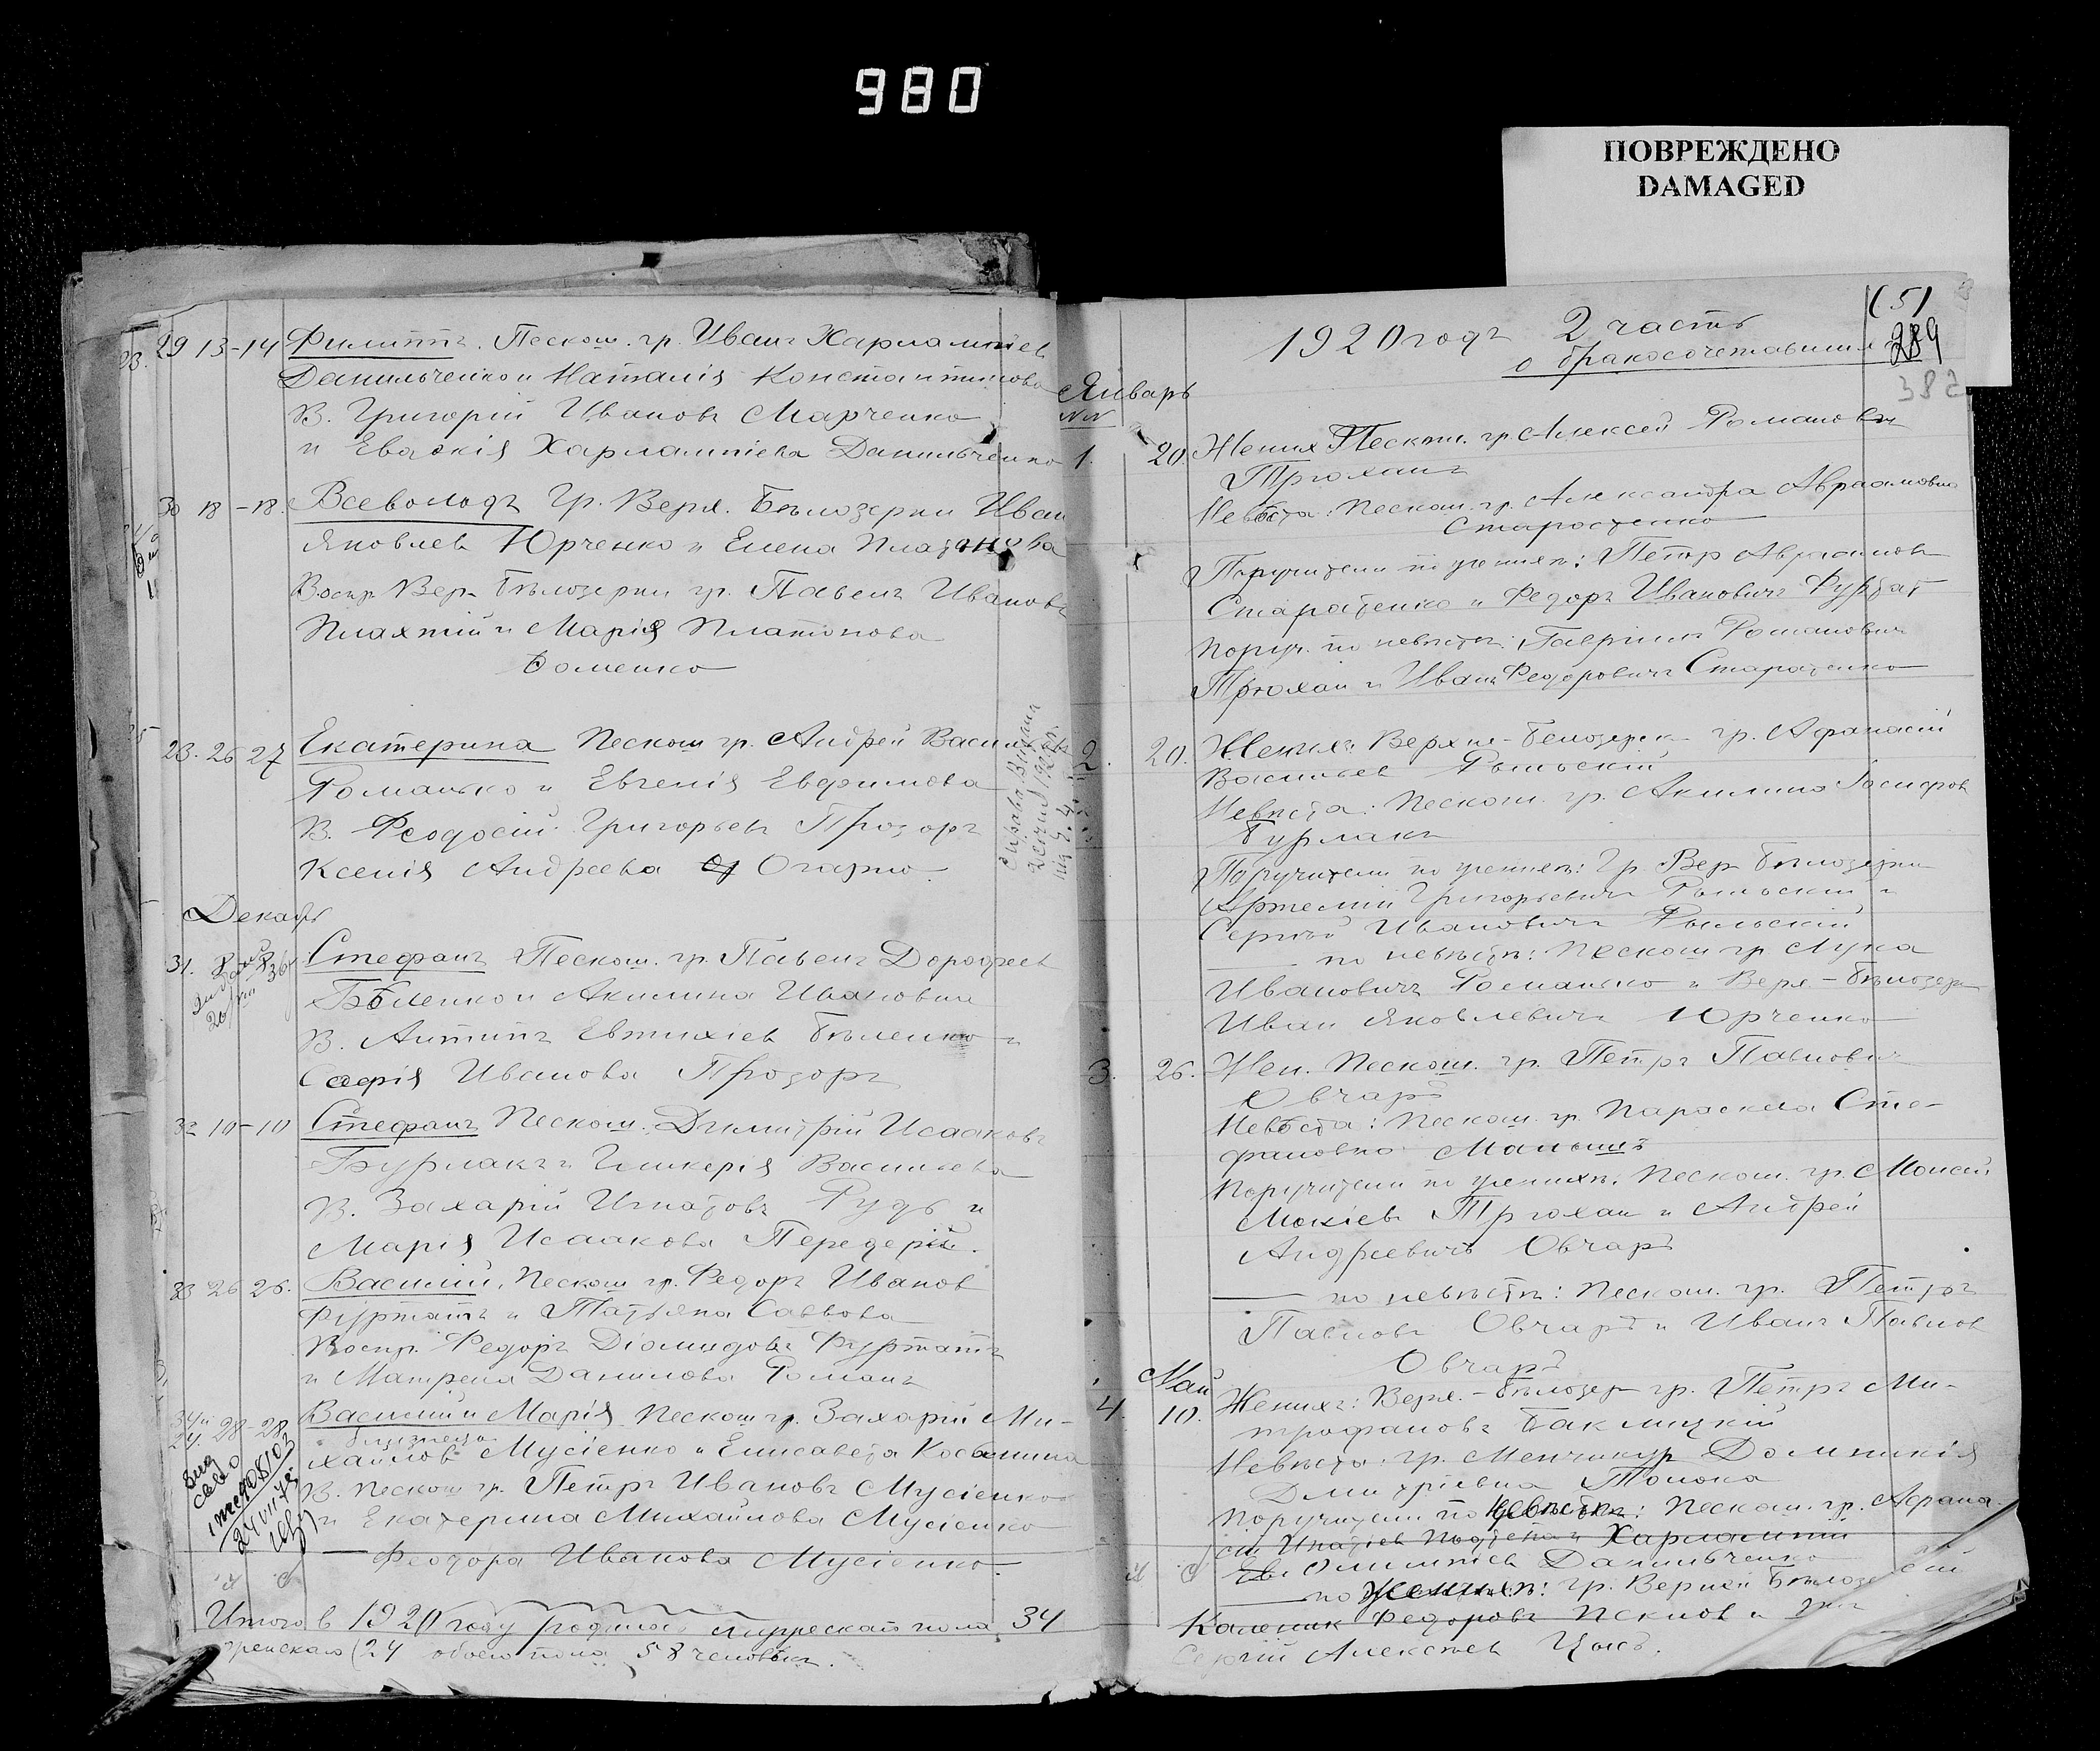 980
ПОВРЕЖДЕНО
DAMAGED
29 13-14 Филиппъ. Пескош. гр. Иванъ Харлампіев
Данильченко и Наталія Константинова
В. Григорій Ивановъ Марченко
и Евдокія Харлампіева Данильченко
30 18-18. Всеволодъ Гр. Верх. Бѣлозерки Иван
Яковлев Юрченко и Елена Платонова
Воспр. Вер. Бѣлозерки гр. Павелъ Ивановъ
Плахтій и Марія Платонова
Доменко
23. 26 27 Екатерина Пескош гр. Андрей Васил
Романько и Евгенія Евфимова
В. Феодосій Григорьевъ Прозоръ
Ксенія Андреева
Декабр
31. 8 8 Стефанъ Пескош. гр. Павелъ Дорофеев
Бѣленко и Акилина Ивановна
В. Антипъ Евтихіев Бѣленко и
Софія Иванова Прозоръ
32 10-10 Стефанъ Пескош. Димитрій Исааковъ
Бурлакъ и Гликерія Васильева
В. Захарій Игнатовъ Рудь и
Марія Исаакова Передерій.
33 26 26. Василій. Пескош гр. Федоръ Иванов
Фуртатъ и Татьяна Саввова
Воспр. Федоръ Діомидовъ Фуртатъ
и Матрена Данилова Романъ
34 и 24. 28-28 Василій и Марія Пескош гр. Захарій Ми-
близнецы
хайлов Мусіенко и Елисавета Косьмина
В. Пескош гр. Петръ Ивановъ Мусіенко
и Екатерина Михайлова Мусіенко
Феодора Иванова Мусіенко.
Итого в 1920 году родилось мужескаго пола 34
женскаго 24 обоего пола 58 человѣкъ.
(51
289
382
1920 годъ 2 часть
о бракосочетавшихся
Январь
NN
1. 20. Жених Пескош. гр. Алексей Романовъ
Трюханъ
Невѣста: Пескош. гр. Александра Авраамовна
Старостенко
Поручители по женихѣ: Петр Авраамовъ
Старостенко и Федоръ Ивановичъ Фуртат
Поруч. по невѣстѣ: Гавріилъ Романович
Трюхан и Иванъ Феодоровичъ Старостенко
2. 20. Жених: Верхне-Белозерск. гр. Афанасій
Васильев Рыльскій
Невѣста: Пескош. гр. Акилина Іосифов
Бурлакъ
Поручители по женихѣ: Гр. Вер. Бѣлозерки
Артемій Григорьевичъ Рыльскій и
Сергѣй Ивановичъ Рыльскій
по невѣстѣ: Пескош гр. Лука
Ивановичъ Романько и Верх.-Бѣлозерк
Иван Яковлевичъ Юрченко
3. 26. Жен. Пескош. гр. Петръ Павлович
Овчаръ
Невѣста: Пескош. гр. Параскева Сте-
фановна Малышъ
Поручители по женихѣ: Пескош. гр. Моисей
Мокіевъ Трюхан и Андрей
Андреевичъ Овчаръ
по невѣстѣ: Пескош. гр. Петръ
Павловъ Овчаръ и Иванъ Павлов
Овчаръ
Май
4. 10. Жених: Верх.-Бѣлозер. гр. Петръ Ми-
трофановъ Баклицкій
Невѣста: гр. Менчикур Домникія
Дмитріевна Топока
Поручители по невѣстѣ: Пескош. гр. Афана
сій Игнатіев и Харлампій
Олимпіев Данильченко
по женихѣ: гр. Верхней Бѣлозе
Каленик Федоровъ и
Сергій Алексѣев Цыкъ.